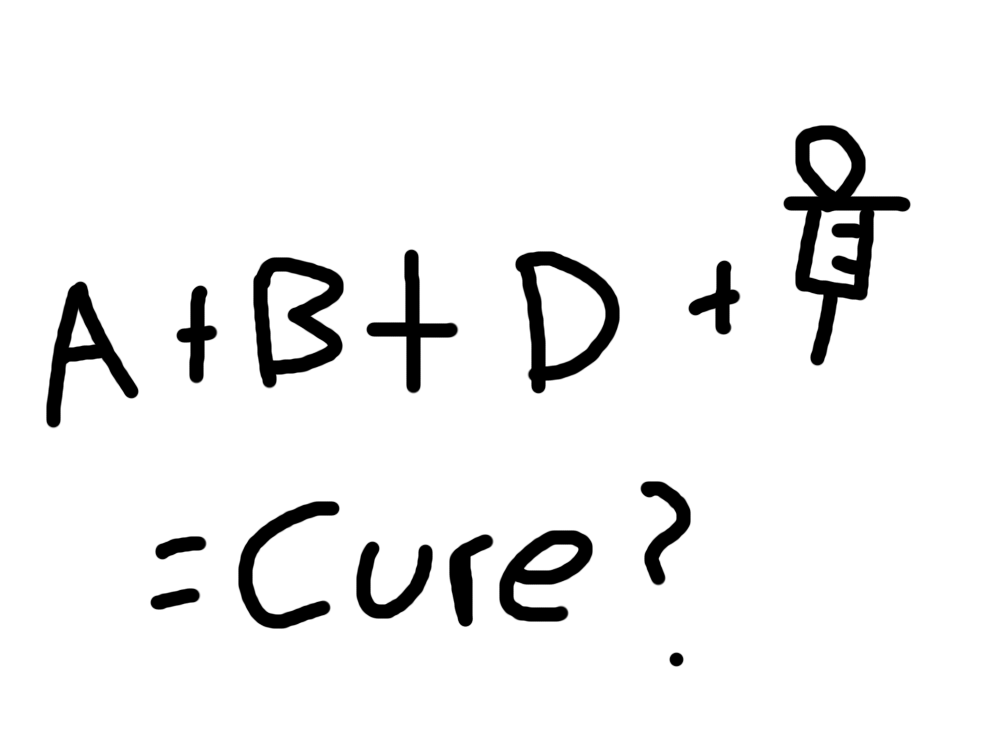 A + B + D +
= Cure?